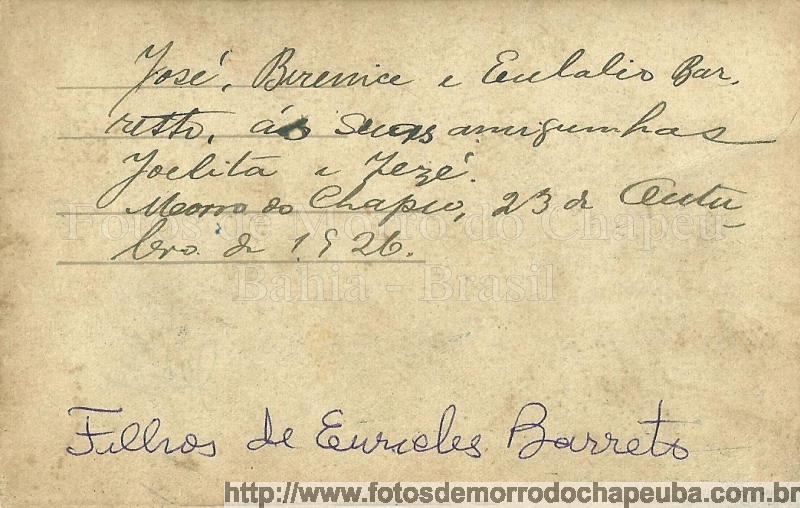 José, Berenice e Eulalio Bar-
retto, ás suas amiguinhas
Joelita e Zezé.
Morro do Chapeo, 23 de Outu-
bro de 1926.
Fotos de Morro do Chapéu
Bahia - Brasil
Filhos de Euricles Barreto
http://www.fotosdemorrodochapeuba.com.br